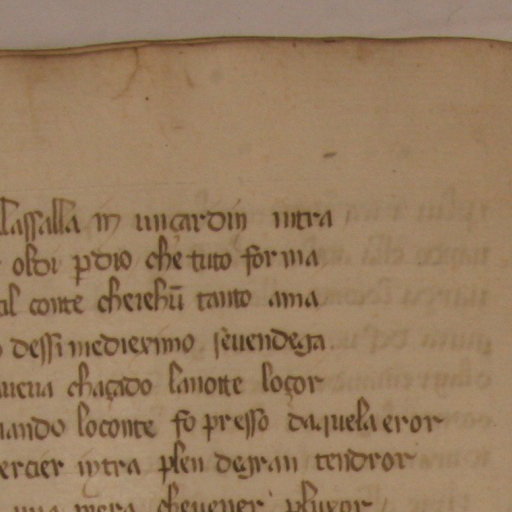 lassalla in un çardin intra
oldi p̱dio che tuto forma
al conte cheiehū tanto ama
dessi medieximo seuendega
aueua chaçado lanoite loçor
uando loconte fo presso daquela eror
ercier intra plen degran tendror